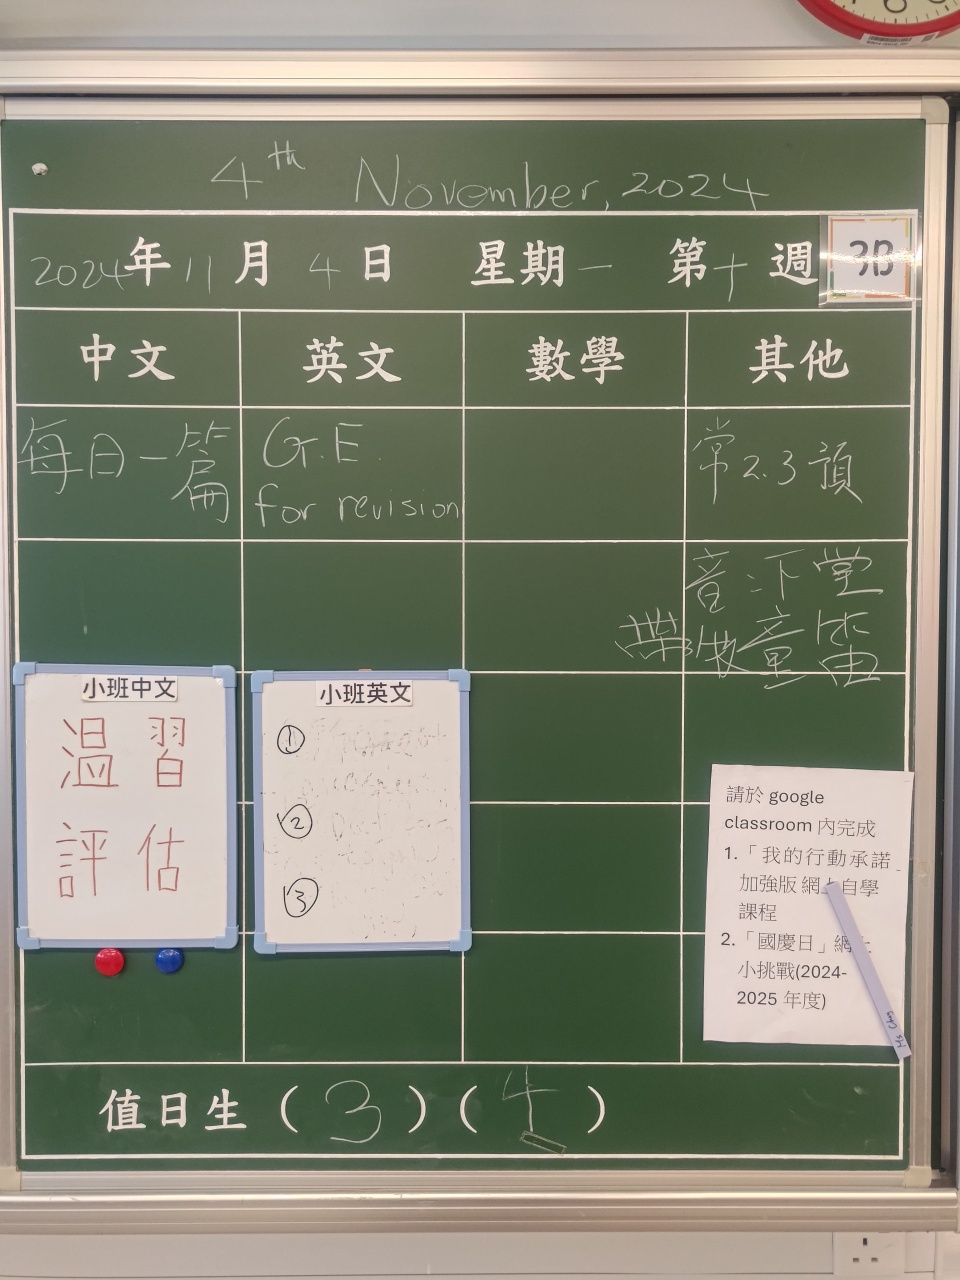 4th November, 2024
2024年11月4日 星期一 第十週 3B
中文 英文 數學 其他
每日一篇
G.E.
for revision
常2.3預
音:下堂
帶牧童笛
小班中文
溫習
評估
小班英文
①
②
③
請於 google
classroom 內完成
1.「我的行動承諾
加強版網上自學
課程
2.「國慶日」網上
小挑戰(2024-
2025 年度)
值日生(3)(4)